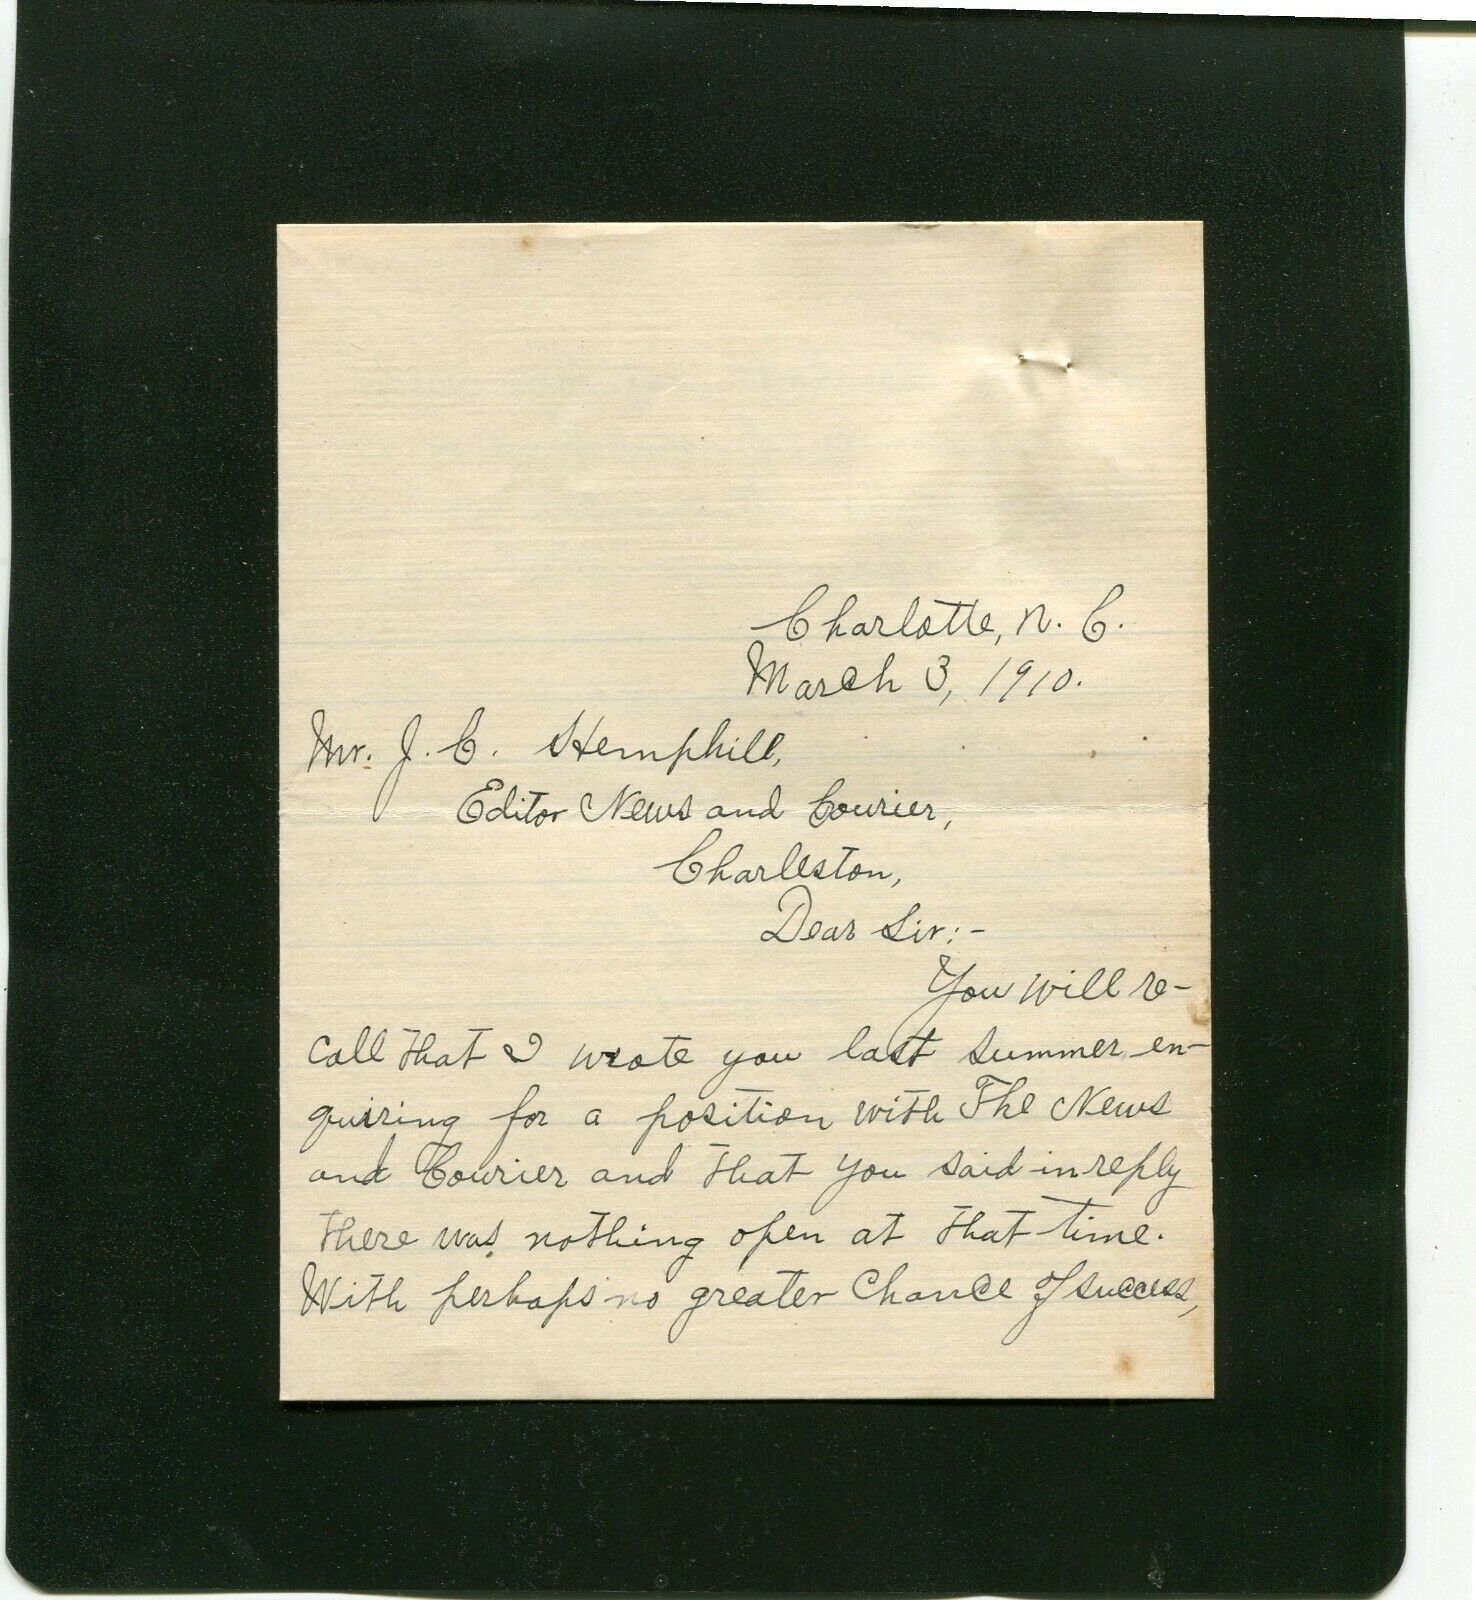 Charlotte, N. C.
March 3, 1910.
Mr. J. C. Hemphill,
Editor News and Courier,
Charleston,
Dear Sir:-
You will re-
call that I wrote you last summer en-
quiring for a position with The News
and Courier and that you said in reply
there was nothing open at that time.
With perhaps no greater chance of success,